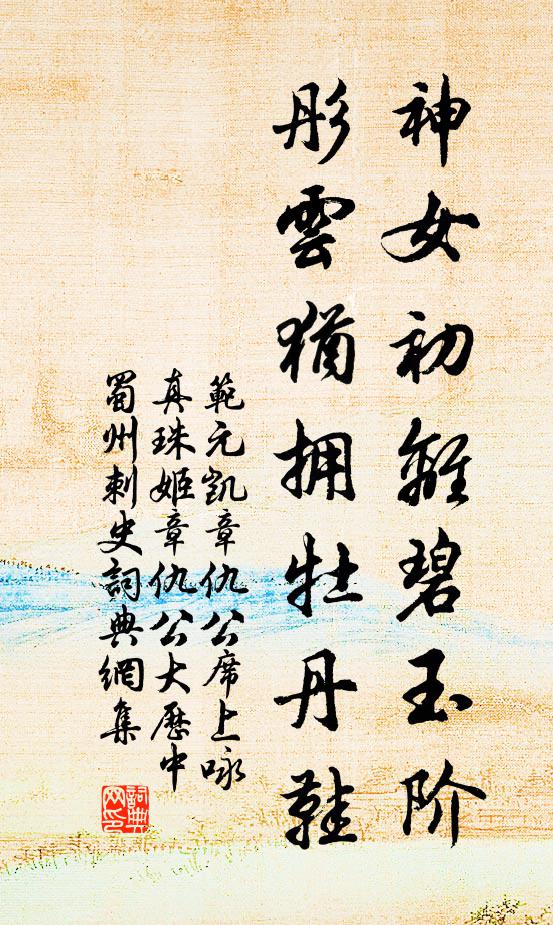 神女初離碧玉阶
彤雲猶拥牡丹鞋
範元凯章仇公席上咏
真珠姬章仇公大歷中
蜀州刺史詞典網集
詞典
网印